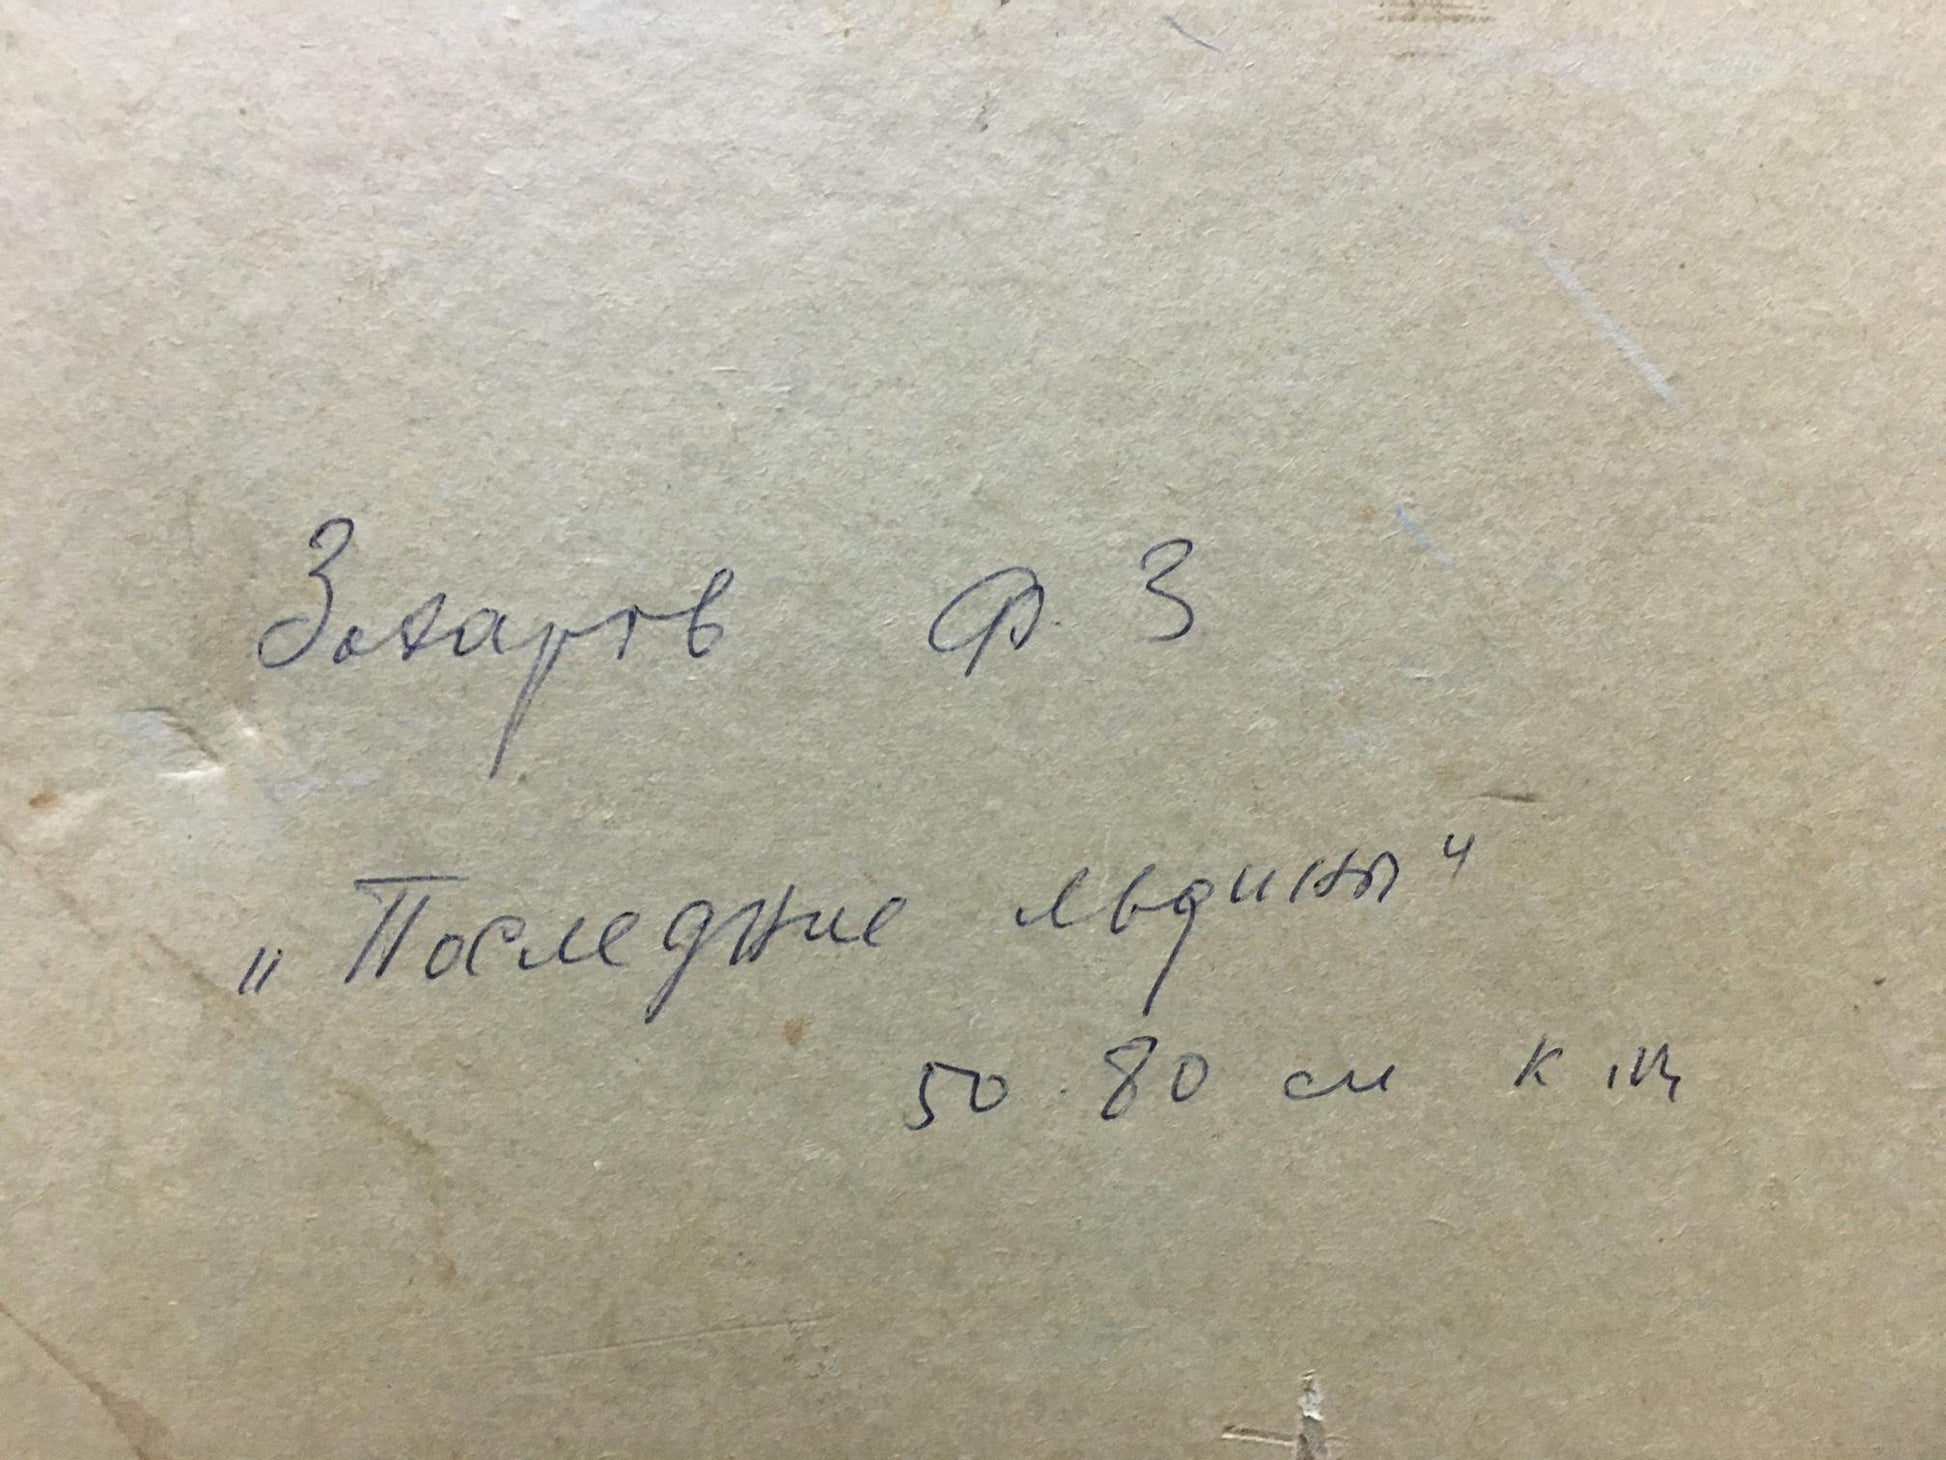 Захаров Ф. З
„Последние льдины“
50.80 см к.м